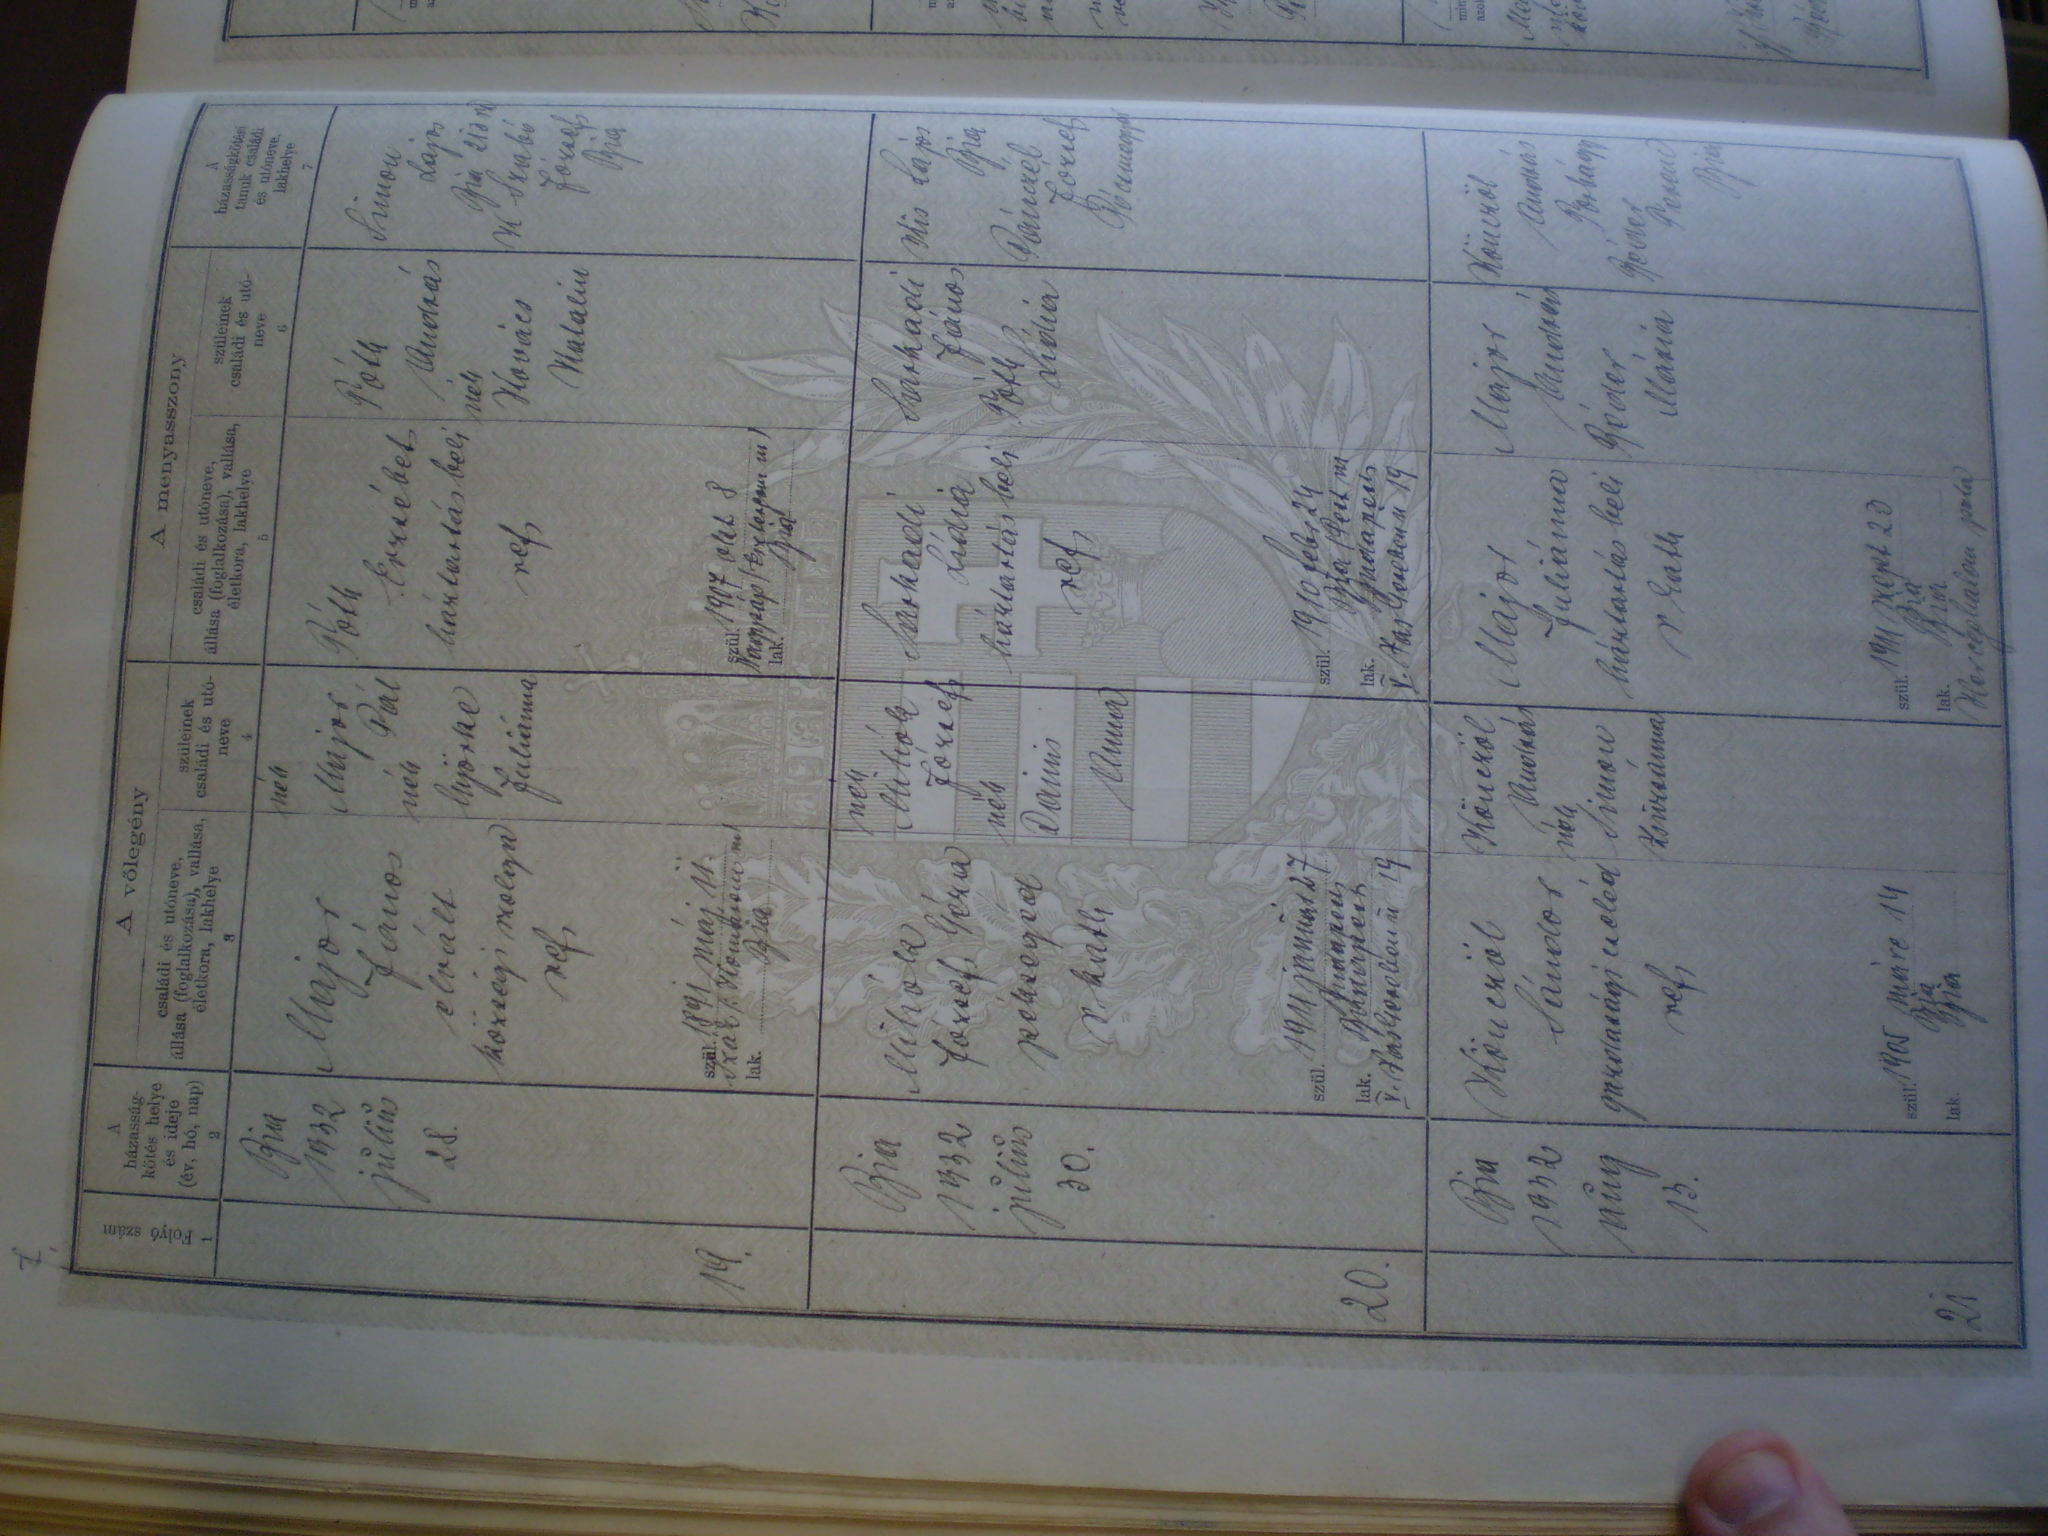 A vőlegény
A menyasszony
Folyó szám
1
A
házasság-
kötés helye
és ideje
(év, hó, nap)
2
családi és utóneve,
állása (foglalkozása), vallása,
életkora, lakhelye
3
szüleinek
családi és utó-
neve
4
családi és utóneve,
állása (foglalkozása), vallása,
életkora, lakhelye
5
szüleinek
családi és utó-
neve
6
A
házasságkötési
tanuk családi
és utóneve,
lakhelye
7
19.
Bia
1932
július
28.
Major
János
elvált
községi szolga
ref
szül. 1891 máj 11.
lak. Bia
néh
Major
Pál
néh
Györke
Juliánna
Tóth
Erzsébet
háztartásbeli
ref
szül. 1907 okt 8
lak. Bia
Tóth
András
néh
Kovács
Katalin
Simon
Lajos
Bia
K Szabó
József
Bia
20.
Bia
1932
július
30.
József Géza
pékségéd
r kath
szül. 1911 január 27
Budapest
lak. Budapest
19
néh
József
néh
Anna
Szarkadi
Lídia
háztartásbeli
ref
szül. 1910 febr 24
Bia Pest m
lak. Budapest
19
Szarkadi
János
Tóth
Lídia
Kis Lajos
Bia
József
21
Bia
1932
aug
13.
Könczöl
Sándor
gazdasági cseléd
ref
szül. 1905 márc 14
Bia
lak. Bia
Könczöl
András
néh
Simon
Zsuzsánna
Major
Juliánna
háztartásbeli
r kath
szül. 1911 szept 20
Bia
lak. Bia
Herceghalom puszta
Major
András
Mária
Könczöl
András
Ferenc
Bia